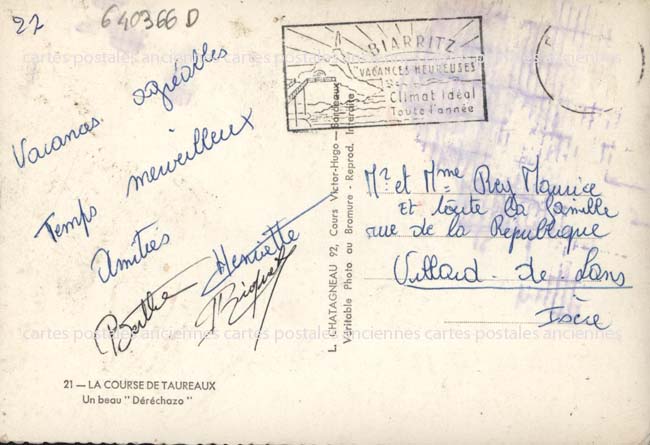 22
640366 D
Vacances agréables
Temps merveilleux
Amitiés
Henriette
Berthe
21 — LA COURSE DE TAUREAUX
Un beau " Déréchazo "
L. CHATAGNEAU 92, Cours Victor-Hugo — Bordeaux
Véritable Photo au Bromure - Reprod. Interdite
BIARRITZ
VACANCES HEUREUSES
Climat idéal
Toute l'année
Mr et Mme Rey Maurice
et toute la famille
rue de la République
Villard-de-Lans
Isère
cartes postales anciennes cartes postales anciennes cartes postales anciennes
cartes postales anciennes cartes postales anciennes cartes postales anciennes